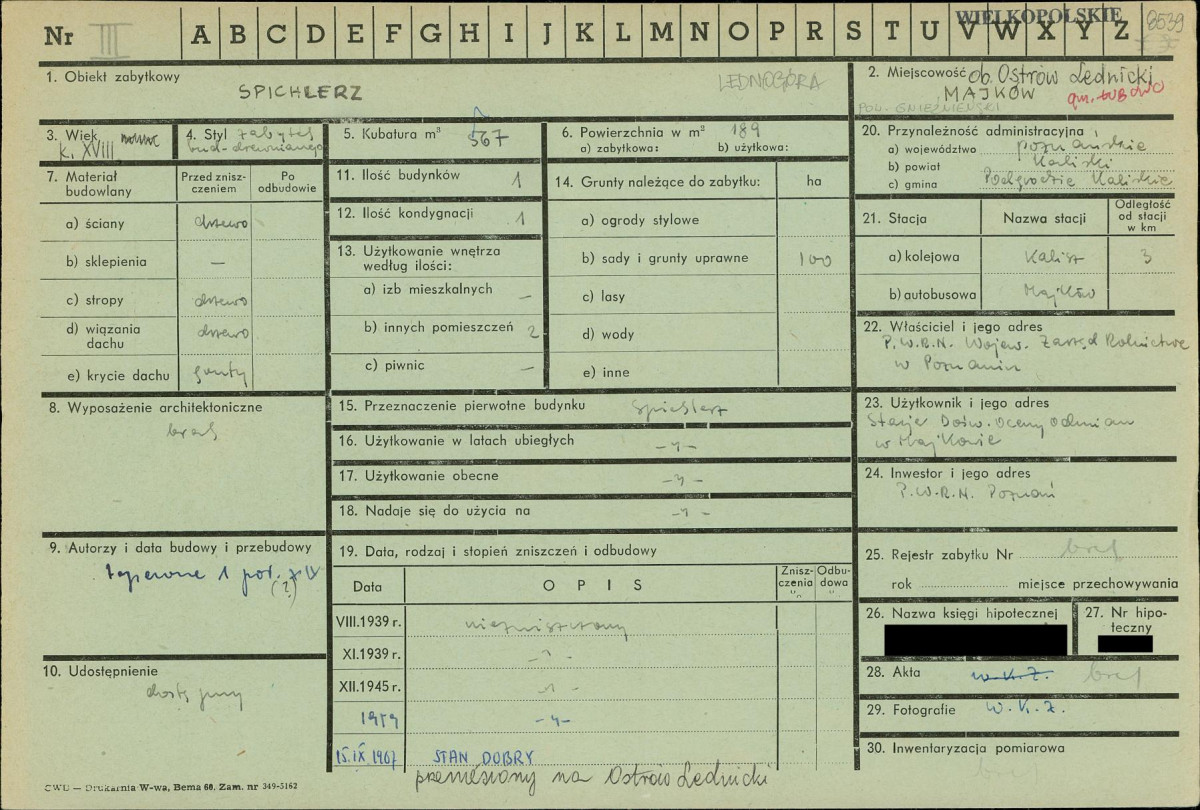 Nr III A B C D E F G H I J K L M N O P R S T U V W X Y Z
WIELKOPOLSKIE
8539
1. Obiekt zabytkowy
SPICHLERZ
LEDNOGÓRA
2. Miejscowość ob. Ostrów Lednicki
MAJKÓW
gm. ŁUBOWO
POW. GNIEŹNIEŃSKI
3. Wiek
k. XVIII
4. Styl zabytek
bud-drewnianego
5. Kubatura m³ 567
6. Powierzchnia w m² 189
a) zabytkowa: b) użytkowa:
7. Materiał budowlany
Przed zniszczeniem
Po odbudowie
a) ściany drzewo
b) sklepienia —
c) stropy drzewo
d) wiązania dachu drzewo
e) krycie dachu gonty
8. Wyposażenie architektoniczne
brak
9. Autorzy i data budowy i przebudowy
1 poł. XIX
(?)
10. Udostępnienie
dostępny
11. Ilość budynków 1
12. Ilość kondygnacji 1
13. Użytkowanie wnętrza
według ilości:
a) izb mieszkalnych —
b) innych pomieszczeń 2
c) piwnic —
14. Grunty należące do zabytku: ha
a) ogrody stylowe
b) sady i grunty uprawne 100
c) lasy
d) wody
e) inne
15. Przeznaczenie pierwotne budynku spichlerz
16. Użytkowanie w latach ubiegłych -„-
17. Użytkowanie obecne -„-
18. Nadaje się do użycia na -„-
19. Data, rodzaj i stopień zniszczeń i odbudowy
Data OPIS Zniszczenia % Odbudowa %
VIII.1939 r. niezniszczony
XI.1939 r. -„-
XII.1945 r. -„-
1959 -„-
15.IX 1967 STAN DOBRY
przeniesiony na Ostrów Lednicki
20. Przynależność administracyjna
a) województwo poznańskie
b) powiat Kaliski
c) gmina Podgrodzie Kaliskie
21. Stacja Nazwa stacji Odległość od stacji w km
a) kolejowa Kalisz 3
b) autobusowa Majków
22. Właściciel i jego adres
P.W.R.N. Wojew. Zarząd Rolnictwa
w Poznaniu
23. Użytkownik i jego adres
Stacja Dośw. Oceny Odmian
w Majkowie
24. Inwestor i jego adres
P.W.R.N. Poznań
25. Rejestr zabytku Nr brak
rok miejsce przechowywania
26. Nazwa księgi hipotecznej
27. Nr hipoteczny
28. Akta w.K.Z. brak
29. Fotografie W.K.Z.
30. Inwentaryzacja pomiarowa
brak
CWD — Drukarnia W-wa, Bema 60. Zam. nr 349-5162